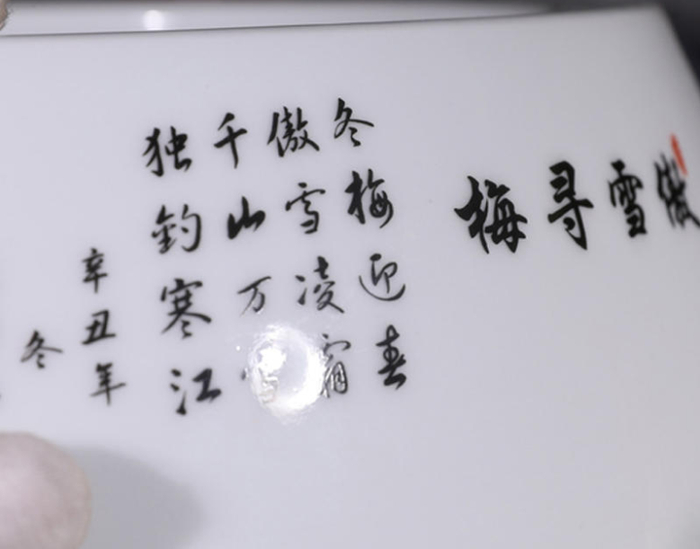 傲雪寻梅
冬梅迎春
傲雪凌霜
千山万雪
独钓寒江
辛丑年
冬